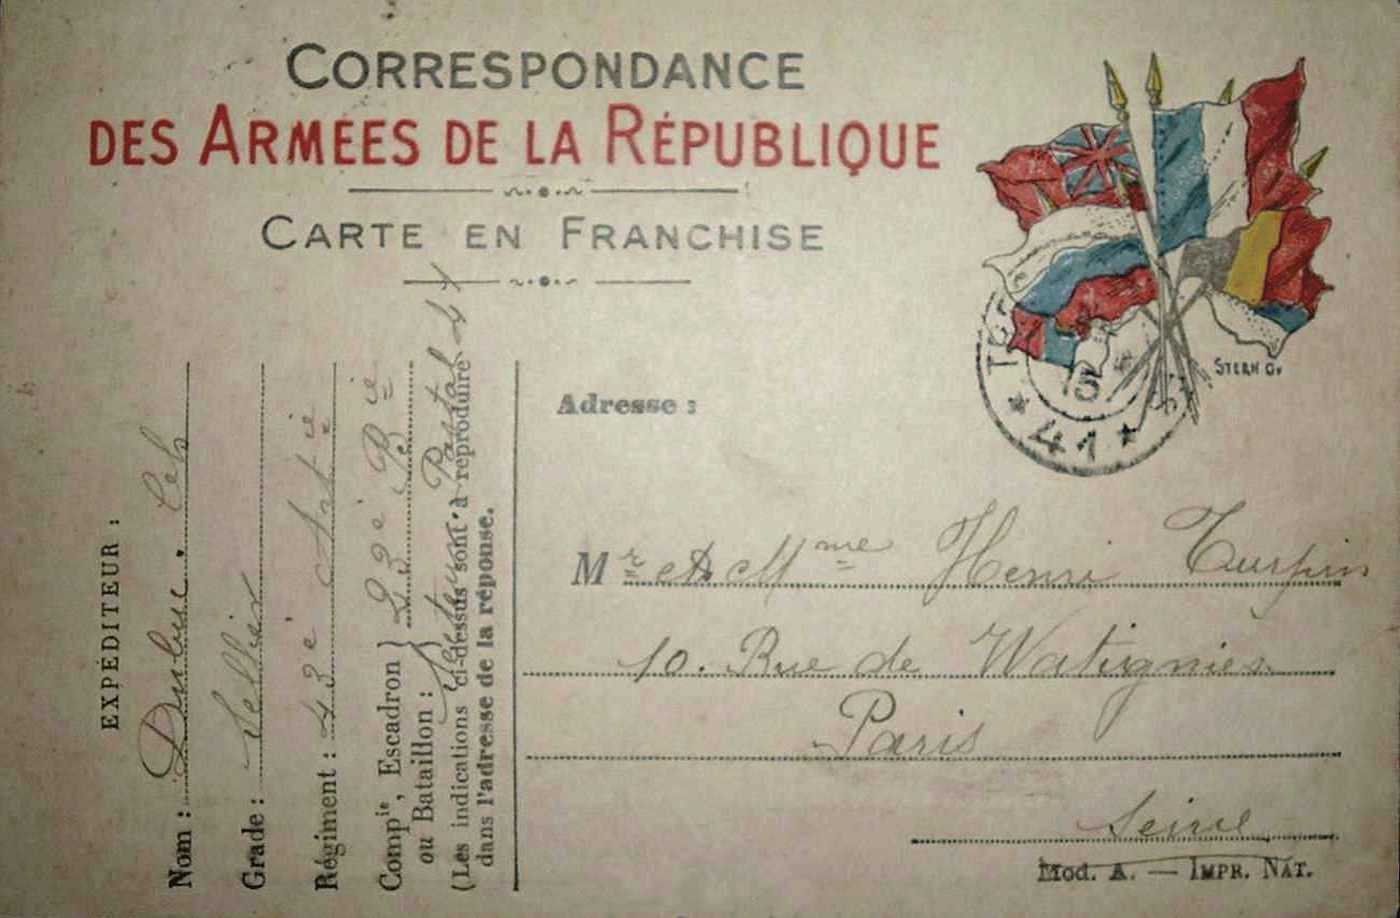 CORRESPONDANCE
DES ARMÉES DE LA RÉPUBLIQUE
CARTE EN FRANCHISE
STERN Gr
41
EXPÉDITEUR :
Nom : Dubuc.
Grade : Sellier
Régiment : 43e Artie
Compie, Escadron } 23e Bie
ou Bataillon : Secteur Postal
(Les indications ci-dessus sont à reproduire
dans l'adresse de la réponse.
Adresse :
Mr et Mme Henri Turpin
10. Rue de Watignies.
Paris
Seine
Mod. A. — IMPR. NAT.